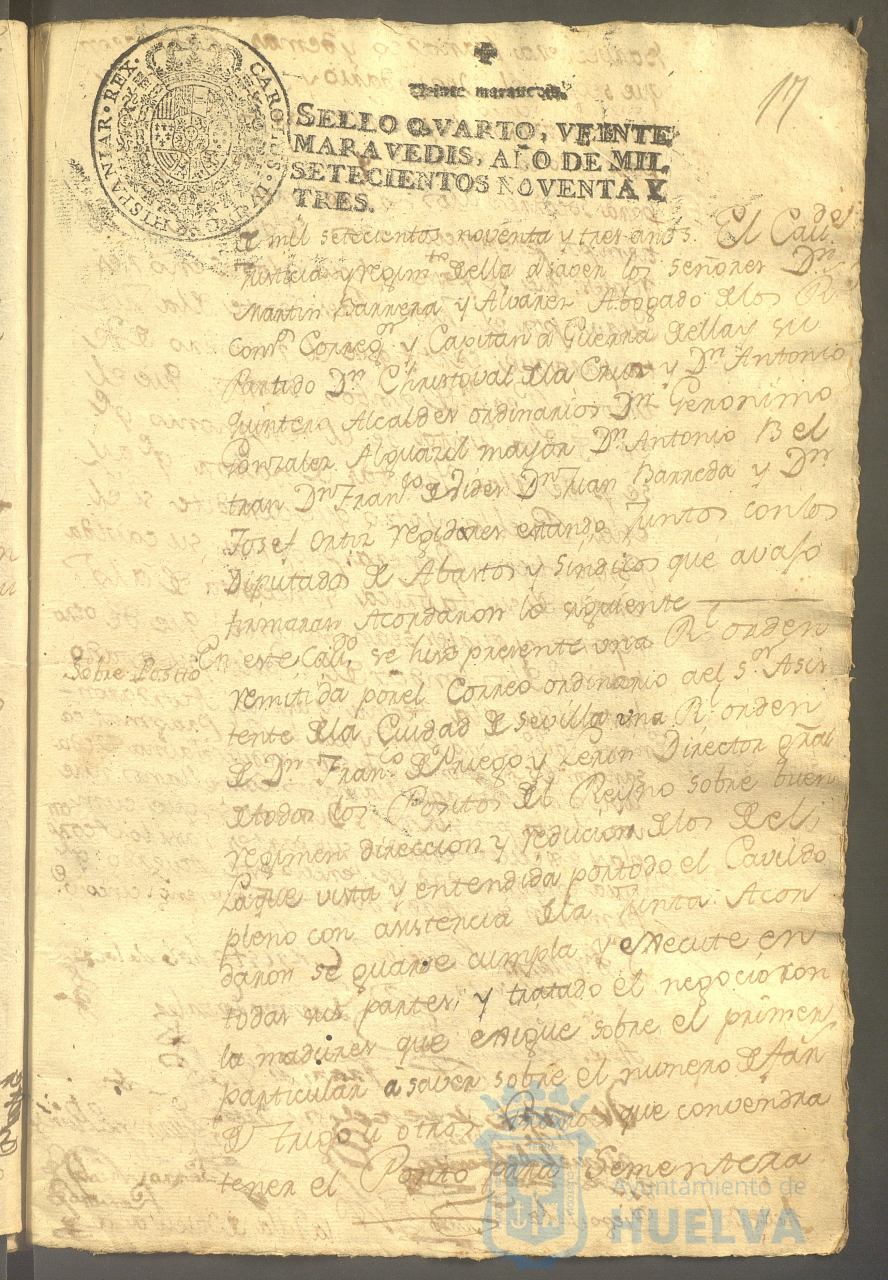 CAROLUS · IV · D · G · HISPANIAR · REX ·
17
SELLO QVARTO, VEINTE
MARAVEDIS, AÑO DE MIL
SETECIENTOS NOVENTA Y
TRES.
mil setecientos noventa y tres años. El Cavdo
Justicia y regimto della a saver los señores Dn
Martin Barrera y Alvarez Abogado de los Rs
Comos Corregor y Capitan a Guerra della y su
Partido Dn Christoval de la Cruz y Dn Antonio
Quintero Alcaldes ordinarios Dn Geronimo
Gonzalez Alguazil mayor Dn Antonio Bel
tran Dn Franco Dn Juan Barreda y Dn
Josef Ortiz regidores estando juntos con los
Diputados de Abastos y Sindicos que avajo
firmaran Acordaron lo siguiente
Sobre Posito
En este Cavdo se hizo presente una Rl orden
remitida por el Correo ordinario del Sor Asis
tente de la Ciudad de Sevilla una Rl orden
de Dn Franco de Priego y Lerin Director gral
de todos los Positos del Reyno sobre buen
regimen direccion y reducion de los del,
La que vista y entendida por todo el Cavildo
pleno con asistencia de la Junta Acor
daron se guarde cumpla y execute en
todas sus partes, y tratado el negocio con
la madures que exige sobre el primer
particular a saver sobre el numero de fan
de Trigo u otros Granos que convendra
tener el Posito para Sementera
Ayuntamiento de
HUELVA